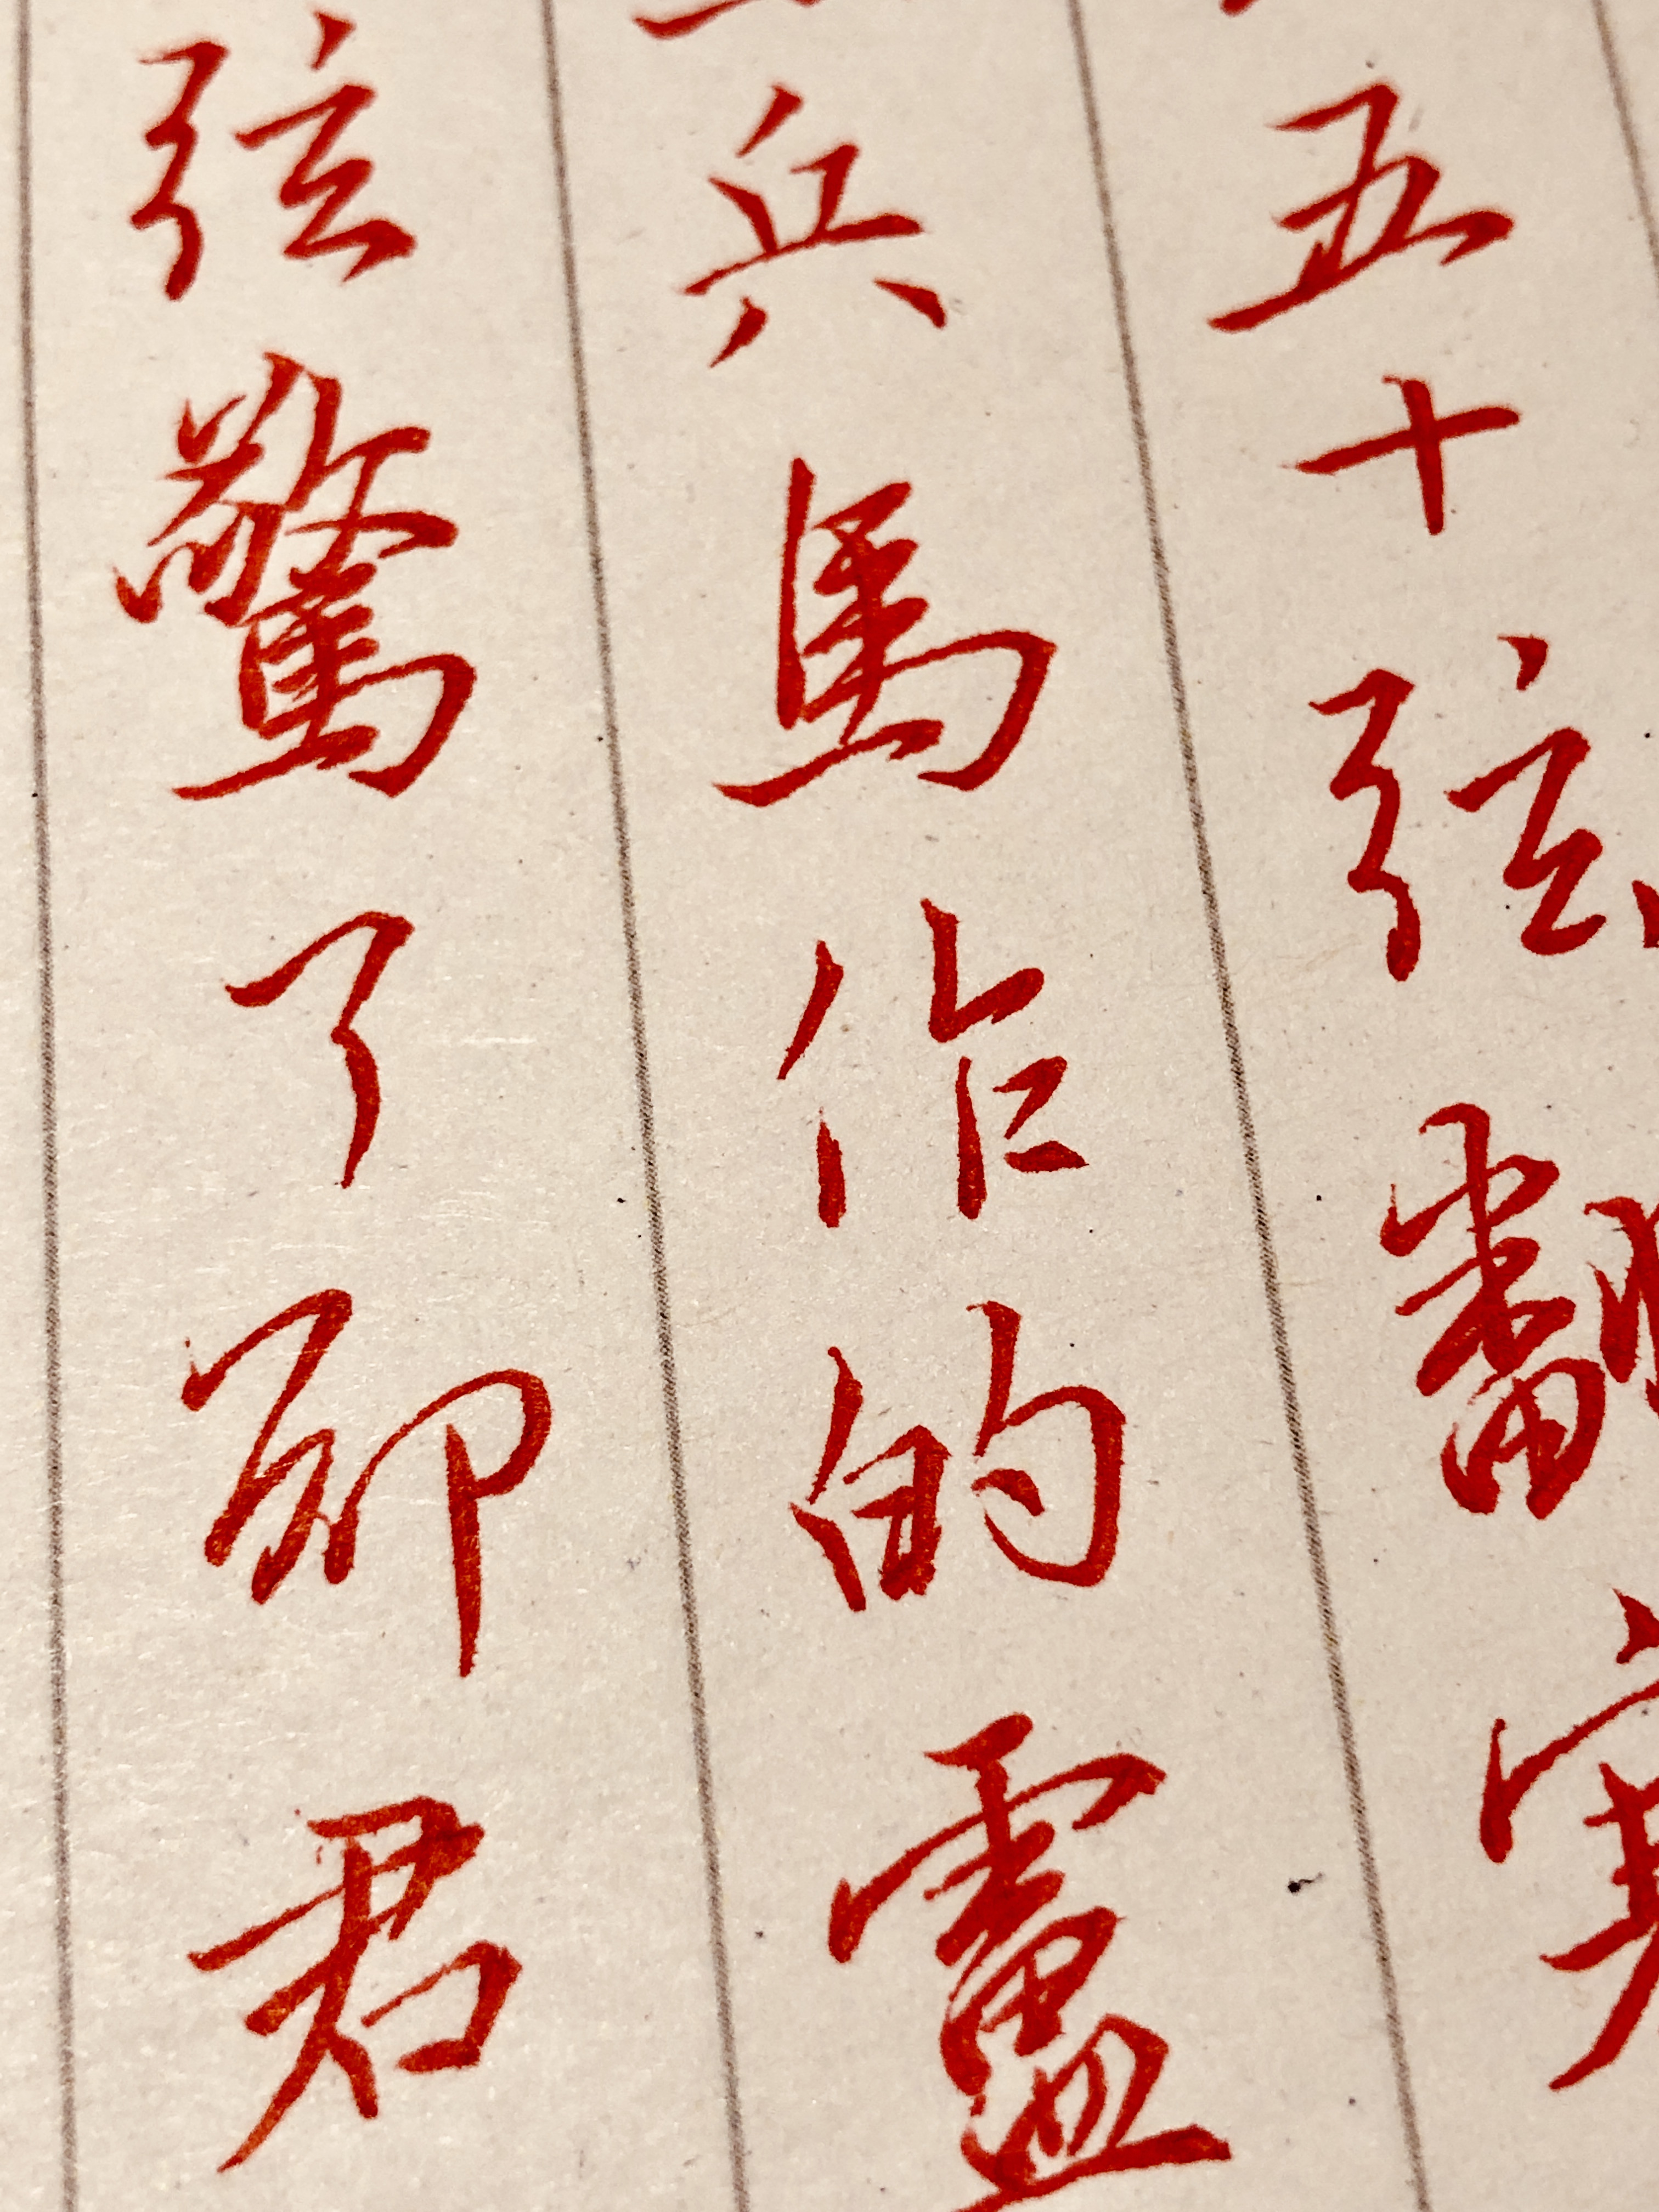 五十弦翻塞
兵馬作的盧
弦驚了卻君